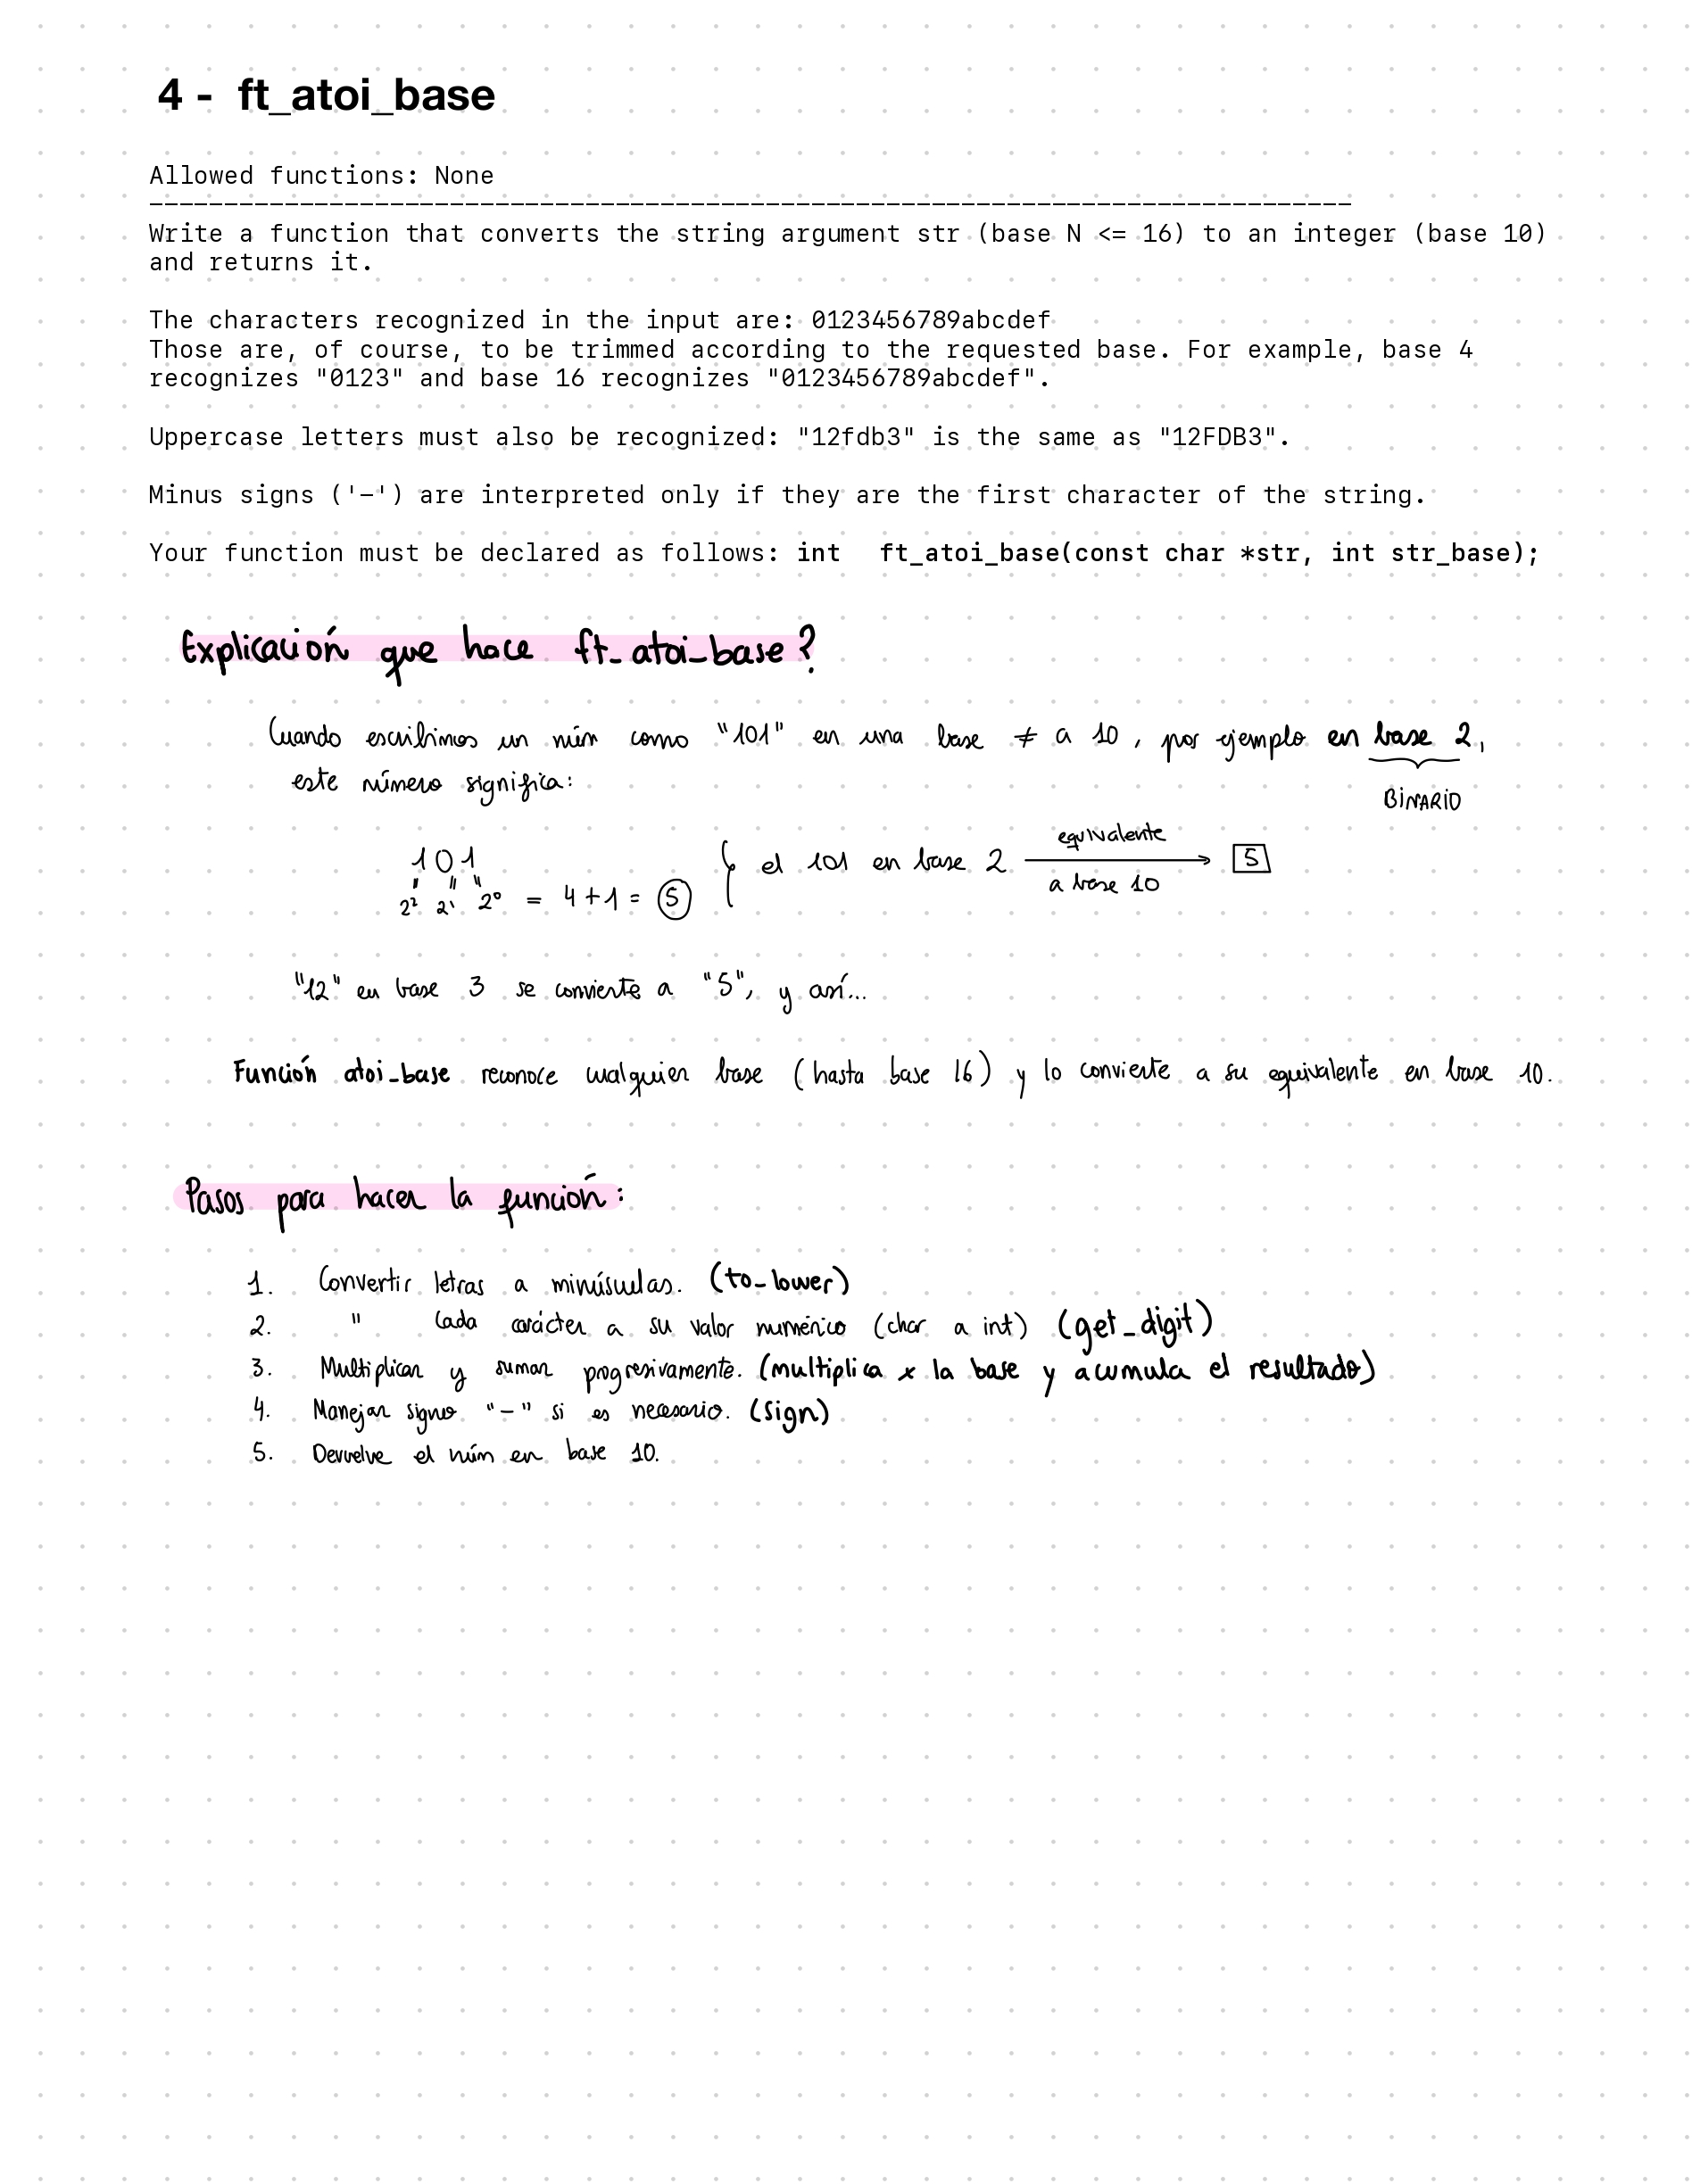 4 - ft_atoi_base
Allowed functions: None
--------------------------------------------------------------------------------
Write a function that converts the string argument str (base N <= 16) to an integer (base 10)
and returns it.
The characters recognized in the input are: 0123456789abcdef
Those are, of course, to be trimmed according to the requested base. For example, base 4
recognizes "0123" and base 16 recognizes "0123456789abcdef".
Uppercase letters must also be recognized: "12fdb3" is the same as "12FDB3".
Minus signs ('-') are interpreted only if they are the first character of the string.
Your function must be declared as follows: int ft_atoi_base(const char *str, int str_base);
Explicación que hace ft_atoi_base?
Cuando escribimos un núm como "101" en una base ≠ a 10, por ejemplo en base 2,
este número significa:
BINARIO
101
2² 2¹ 2⁰ = 4+1 = 5
el 101 en base 2 equivalente a base 10 5
"12" en base 3 se convierte a "5", y así...
Función atoi_base reconoce cualquier base (hasta base 16) y lo convierte a su equivalente en base 10.
Pasos para hacer la función:
1. Convertir letras a minúsculas. (to_lower)
2. " Cada carácter a su valor numérico (char a int) (get_digit)
3. Multiplicar y sumar progresivamente. (multiplica x la base y acumula el resultado)
4. Manejar signo "-" si es necesario. (sign)
5. Devuelve el núm en base 10.